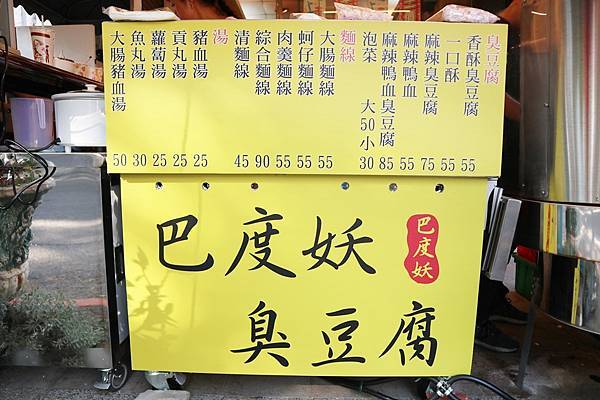 臭豆腐
香酥臭豆腐 55
一口酥 55
麻辣臭豆腐 75
麻辣鴨血 55
麻辣鴨血臭豆腐 85
泡菜 大50小30
麵線
大腸麵線 55
蚵仔麵線 55
肉羹麵線 55
綜合麵線 90
清麵線 45
湯
豬血湯 25
貢丸湯 25
蘿蔔湯 25
魚丸湯 30
大腸豬血湯 50
巴度妖
巴度妖
臭豆腐